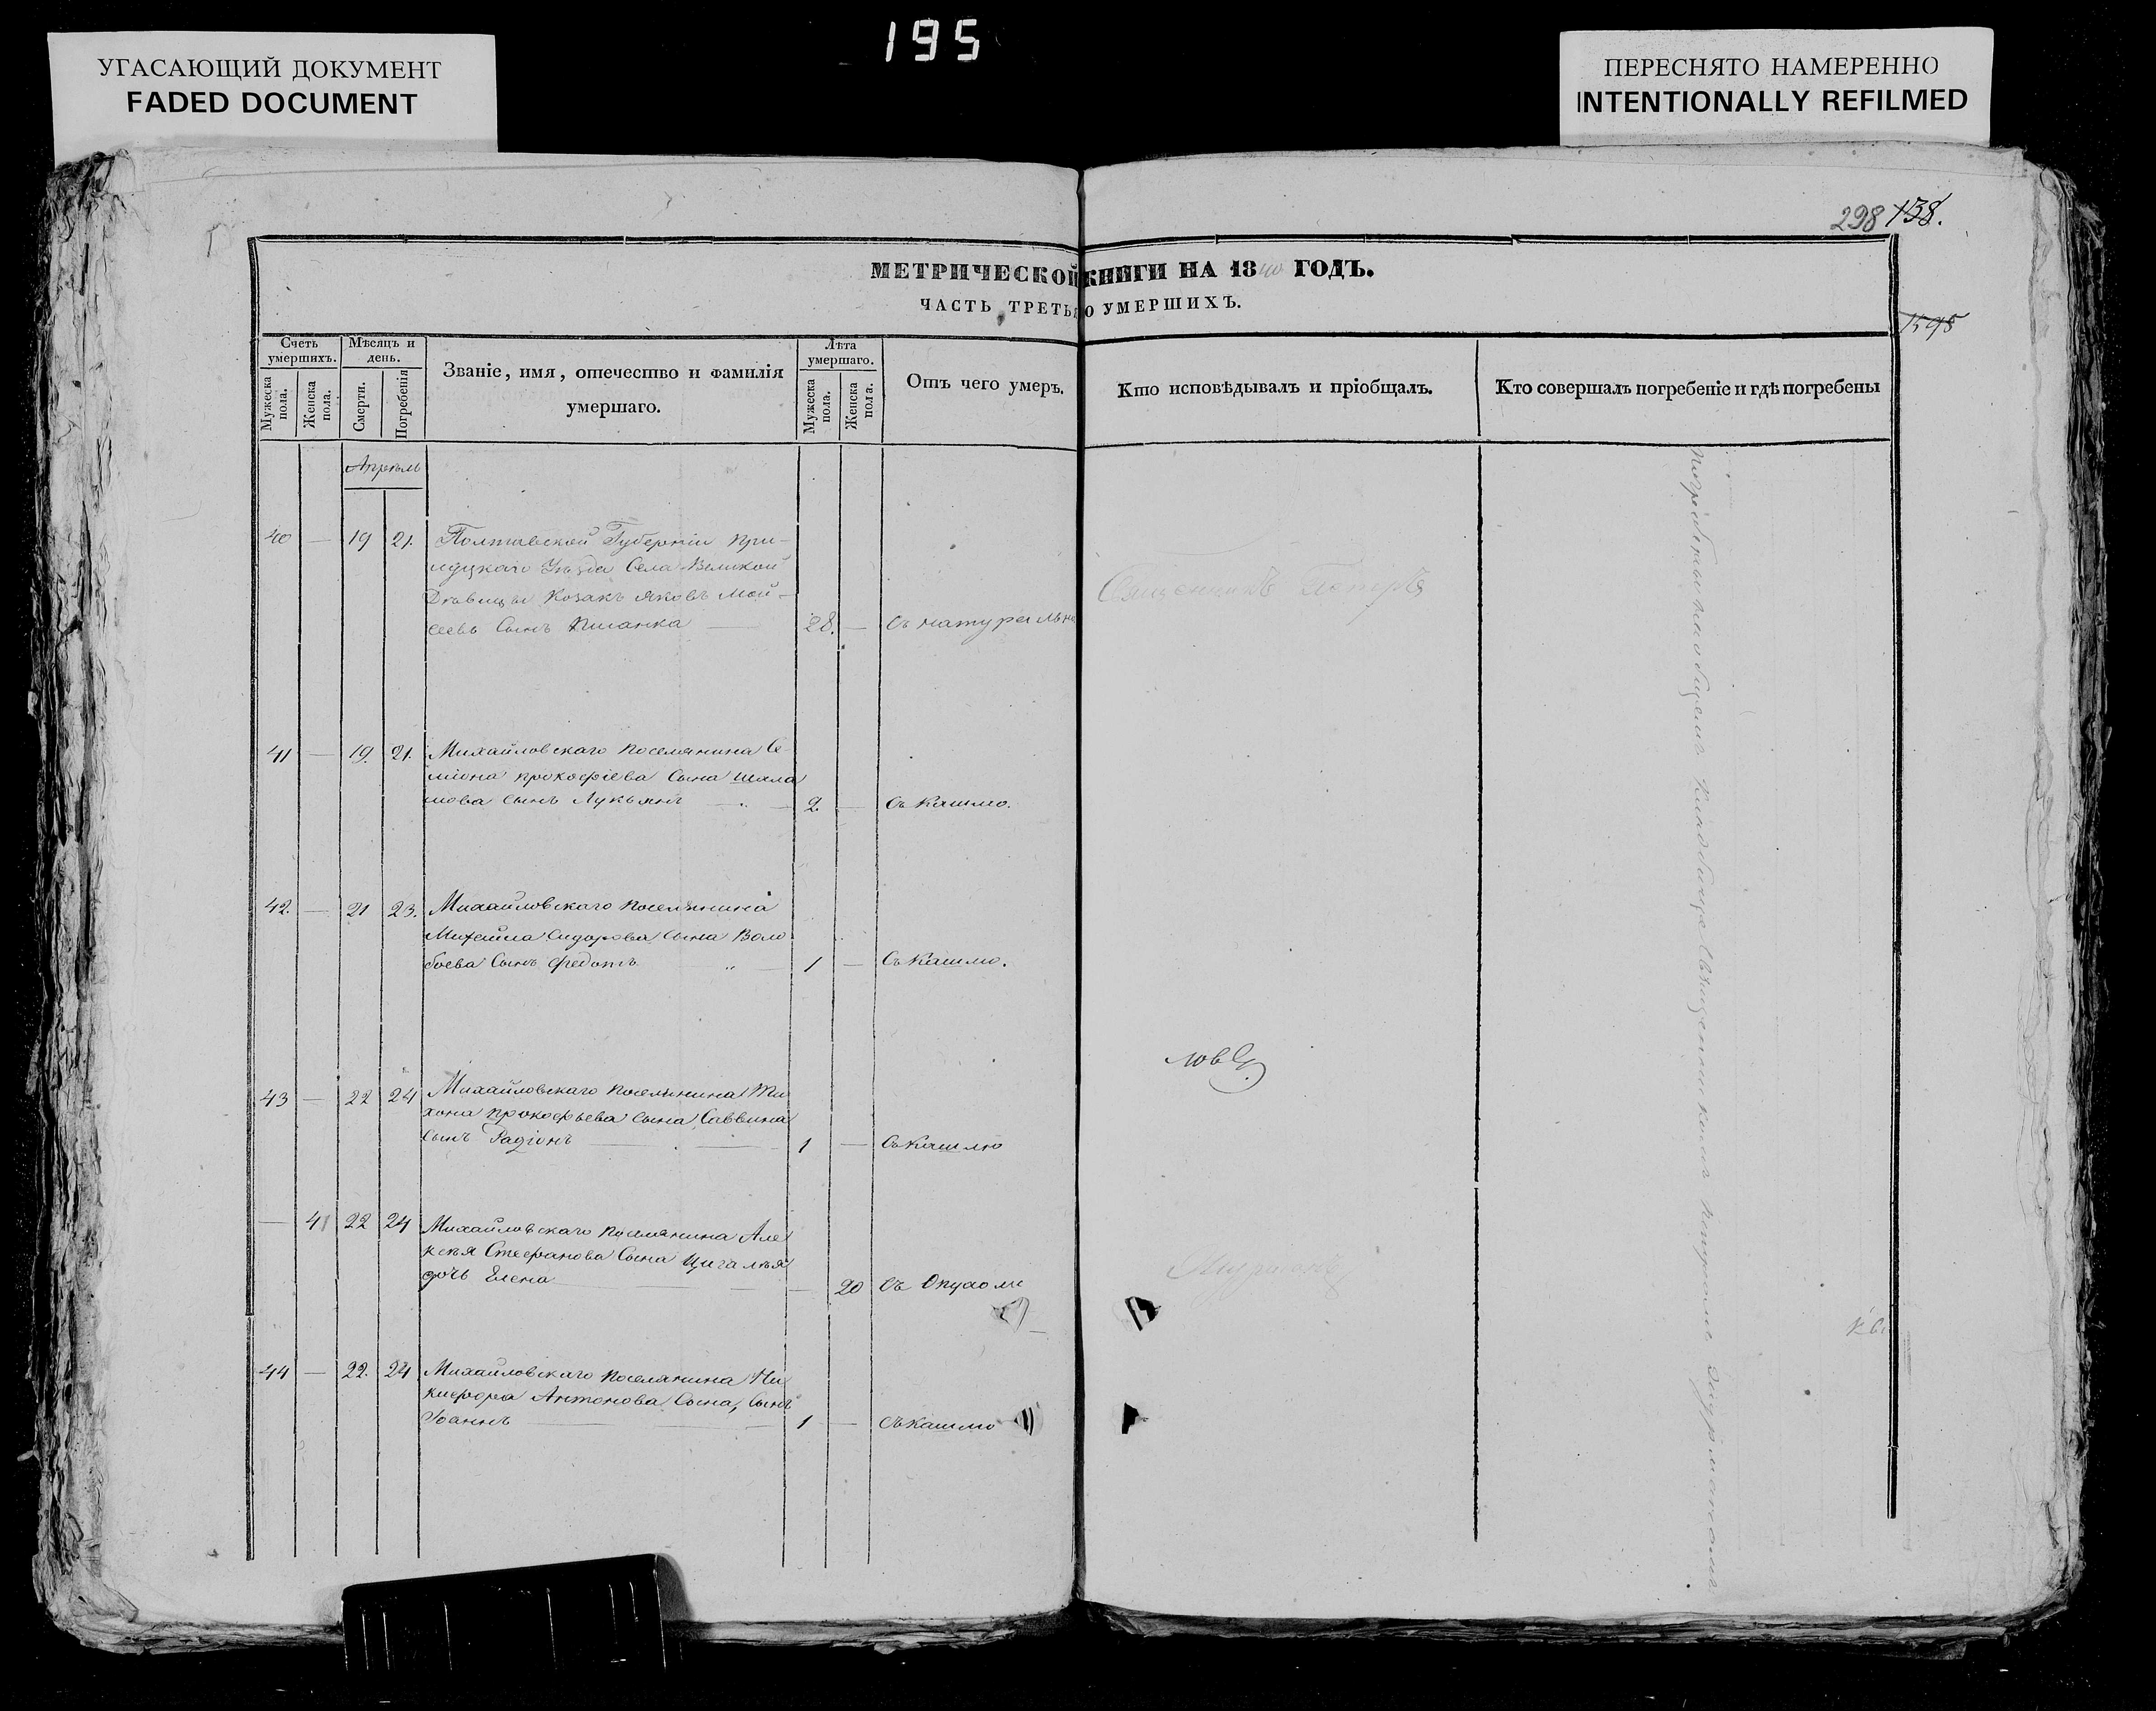 195
УГАСАЮЩИЙ ДОКУМЕНТ
FADED DOCUMENT
ПЕРЕСНЯТО НАМЕРЕННО
INTENTIONALLY REFILMED
298 138.
МЕТРИЧЕСКОЙ КНИГИ НА 1840 ГОДЪ.
ЧАСТЬ ТРЕТЬЯ О УМЕРШИХЪ.
1595
Счетъ умершихъ.
Мужеска пола.
Женска пола.
Мѣсяцъ и день.
Смерти.
Погребенія
Званіе, имя, отечество и фамилія
умершаго.
Лѣта умершаго.
Мужеска пола.
Женска пола.
Отъ чего умеръ.
Кто исповѣдывалъ и пріобщалъ.
Кто совершалъ погребеніе и гдѣ погребены
Апрѣль
40 — 19 21. Полтавской Губерніи При-
луцкаго Уѣзда Села Великой
Дѣвицы Козакъ Яковъ Мой-
сеевъ Сынъ 28. — Съ натуральна
Священникъ Петръ
41 — 19. 21. Михайловскаго поселянина Се-
миона прокофіева Сына
сынъ Лукьянъ — 2. — Съ Кашлю.
42. — 21 23. Михайловскаго поселянина
Михайла Сидорова Сына Воло
боева Сынъ Федотъ 1 — Съ Кашлю.
43 — 22 24 Михайловскаго поселянина Ти
хона прокофьева сына Саввина
Сынъ Радіонъ — 1 — Съ Кашлю
— 41 22 24 Михайловскаго поселянина Але
ксѣя Стефанова Сына
дочь Елена — 20 Съ
44 — 22. 24 Михайловскаго поселянина Ни
кифора Антонова Сына, Сынъ
Іоаннъ — 1 — Съ кашлю
Погребены на общемъ кладбище Священникомъ Петромъ